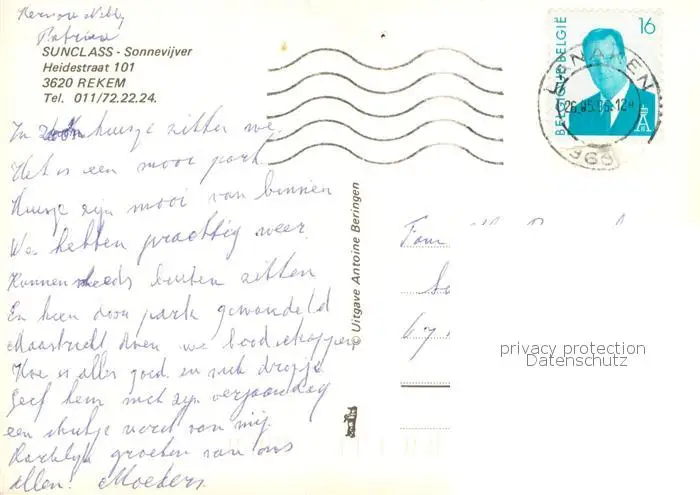 Patricia
SUNCLASS - Sonnevijver
Heidestraat 101
3620 REKEM
Tel. 011/72.22.24.
In huisje zitten we
Het is een mooi park
Huisje zijn mooi van binnen
We hebben prachtig weer
Kunnen steeds buiten zitten
En heen door park gewandeld
Maastricht doen we boodschappen
Hoe is alles goed en ook
Geef hem met zijn verjaardag
een van mij
Hartelijk groeten van ons
allen! Moeders
© Uitgave Antoine Beringen
BELGIQUE-BELGIË
16
LANAKEN
26.05.96-12
Fam
67
privacy protection
Datenschutz